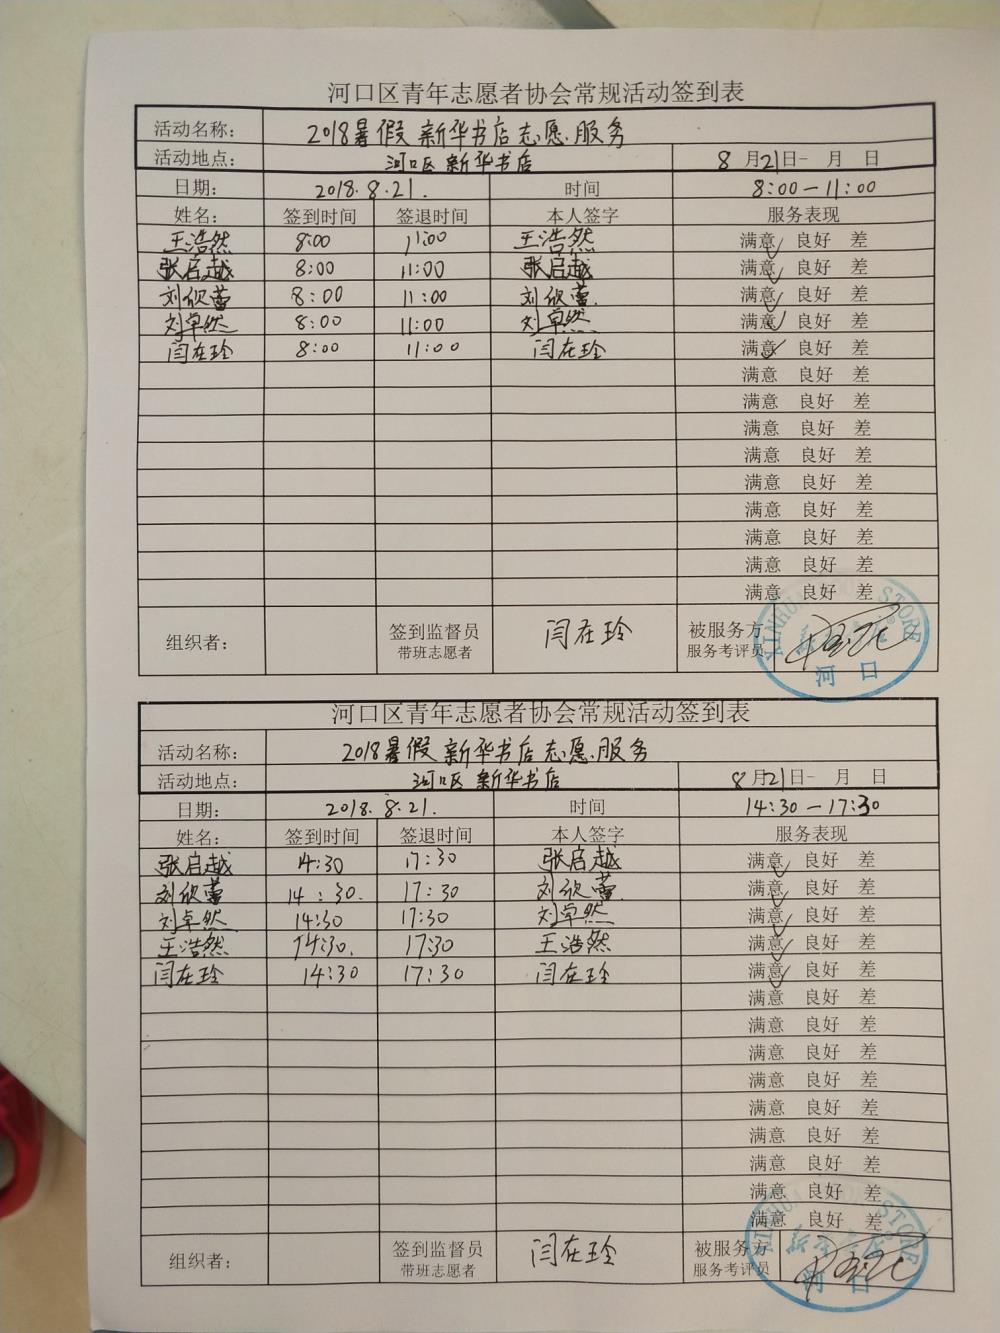 河口区青年志愿者协会常规活动签到表
活动名称: 2018暑假 新华书店志愿服务
活动地点: 河口区 新华书店 8 月21日- 月 日
日期: 2018.8.21. 时间 8:00-11:00
姓名: 签到时间 签退时间 本人签字 服务表现
王浩然 8:00 11:00 王浩然 满意✓ 良好 差
张启越 8:00 11:00 张启越 满意✓ 良好 差
刘欣蕾 8:00 11:00 刘欣蕾. 满意✓ 良好 差
刘卓然 8:00 11:00 刘卓然 满意✓ 良好 差
闫在玲 8:00 11:00 闫在玲 满意✓ 良好 差
满意 良好 差
满意 良好 差
满意 良好 差
满意 良好 差
满意 良好 差
满意 良好 差
满意 良好 差
满意 良好 差
满意 良好 差
组织者: 签到监督员 闫在玲 被服务方
带班志愿者 服务考评员
XINHUA BOOK STORE
河口
河口区青年志愿者协会常规活动签到表
活动名称: 2018暑假 新华书店志愿服务
活动地点: 河口区 新华书店 8 月21日- 月 日
日期: 2018.8.21 时间 14:30-17:30
姓名: 签到时间 签退时间 本人签字 服务表现
张启越 14:30 17:30 张启越 满意✓ 良好 差
刘欣蕾 14:30. 17:30 刘欣蕾. 满意✓ 良好 差
刘卓然 14:30 17:30 刘卓然 满意✓ 良好 差
王浩然 14:30. 17:30 王浩然 满意✓ 良好 差
闫在玲 14:30 17:30 闫在玲 满意✓ 良好 差
满意 良好 差
满意 良好 差
满意 良好 差
满意 良好 差
满意 良好 差
满意 良好 差
满意 良好 差
满意 良好 差
满意 良好 差
组织者: 签到监督员 闫在玲 被服务方
带班志愿者 服务考评员
XINHUA BOOK STORE
新华书店
河口